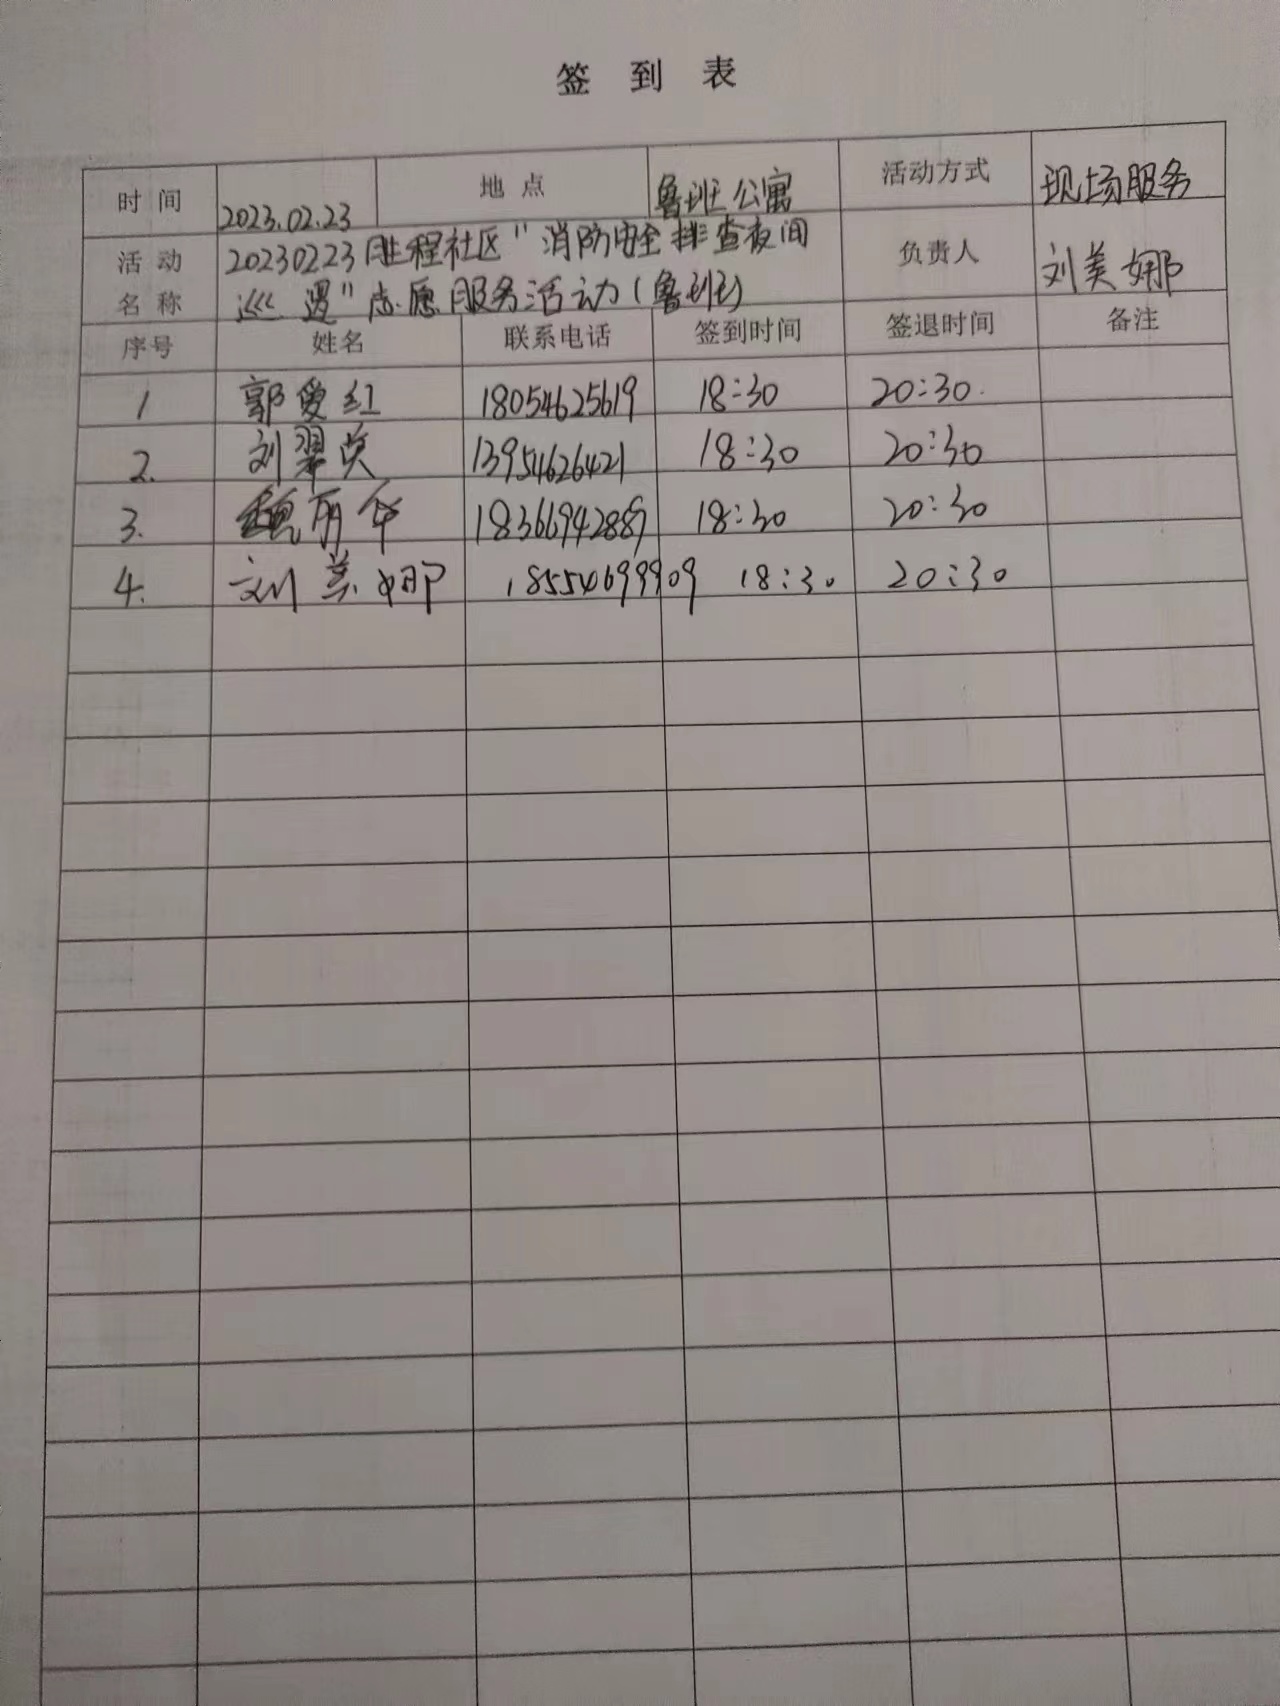 签 到 表
时 间 2023.02.23 地 点 鲁班公寓 活动方式 现场服务
活 动 名 称 20230223胜程社区"消防安全排查夜间 负责人 刘美娜
巡逻"志愿服务活动(鲁班)
序号 姓名 联系电话 签到时间 签退时间 备注
1 郭爱红 18054625619 18:30 20:30.
2. 刘翠英 13954626421 18:30 20:30
3. 魏丽华 18366942889 18:30 20:30
4. 刘美娜 18554699909 18:30 20:30